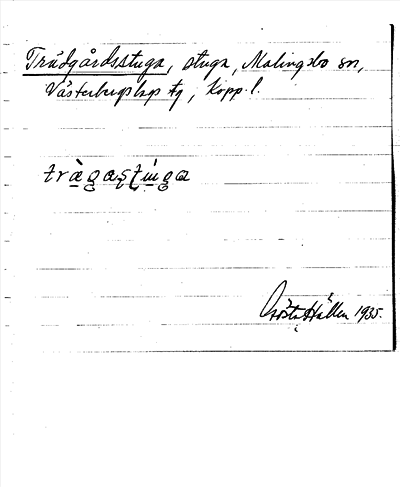 Trädgårdsstuga, stuga, Malingsbo sn,
Västerbergslags tg, Kopp. l.
Gösta Hållen 1935.